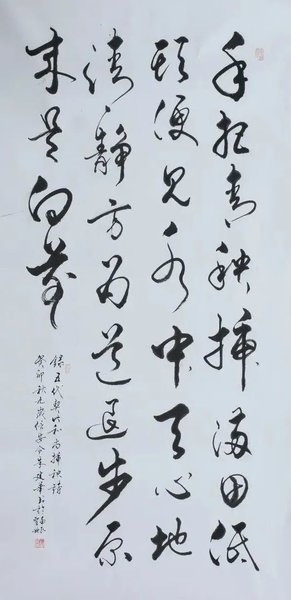 手把青秧插满田低
头便见水中天心地
清静方为道退步原
来是向前
录五代契此和尚插秧诗
癸卯秋月